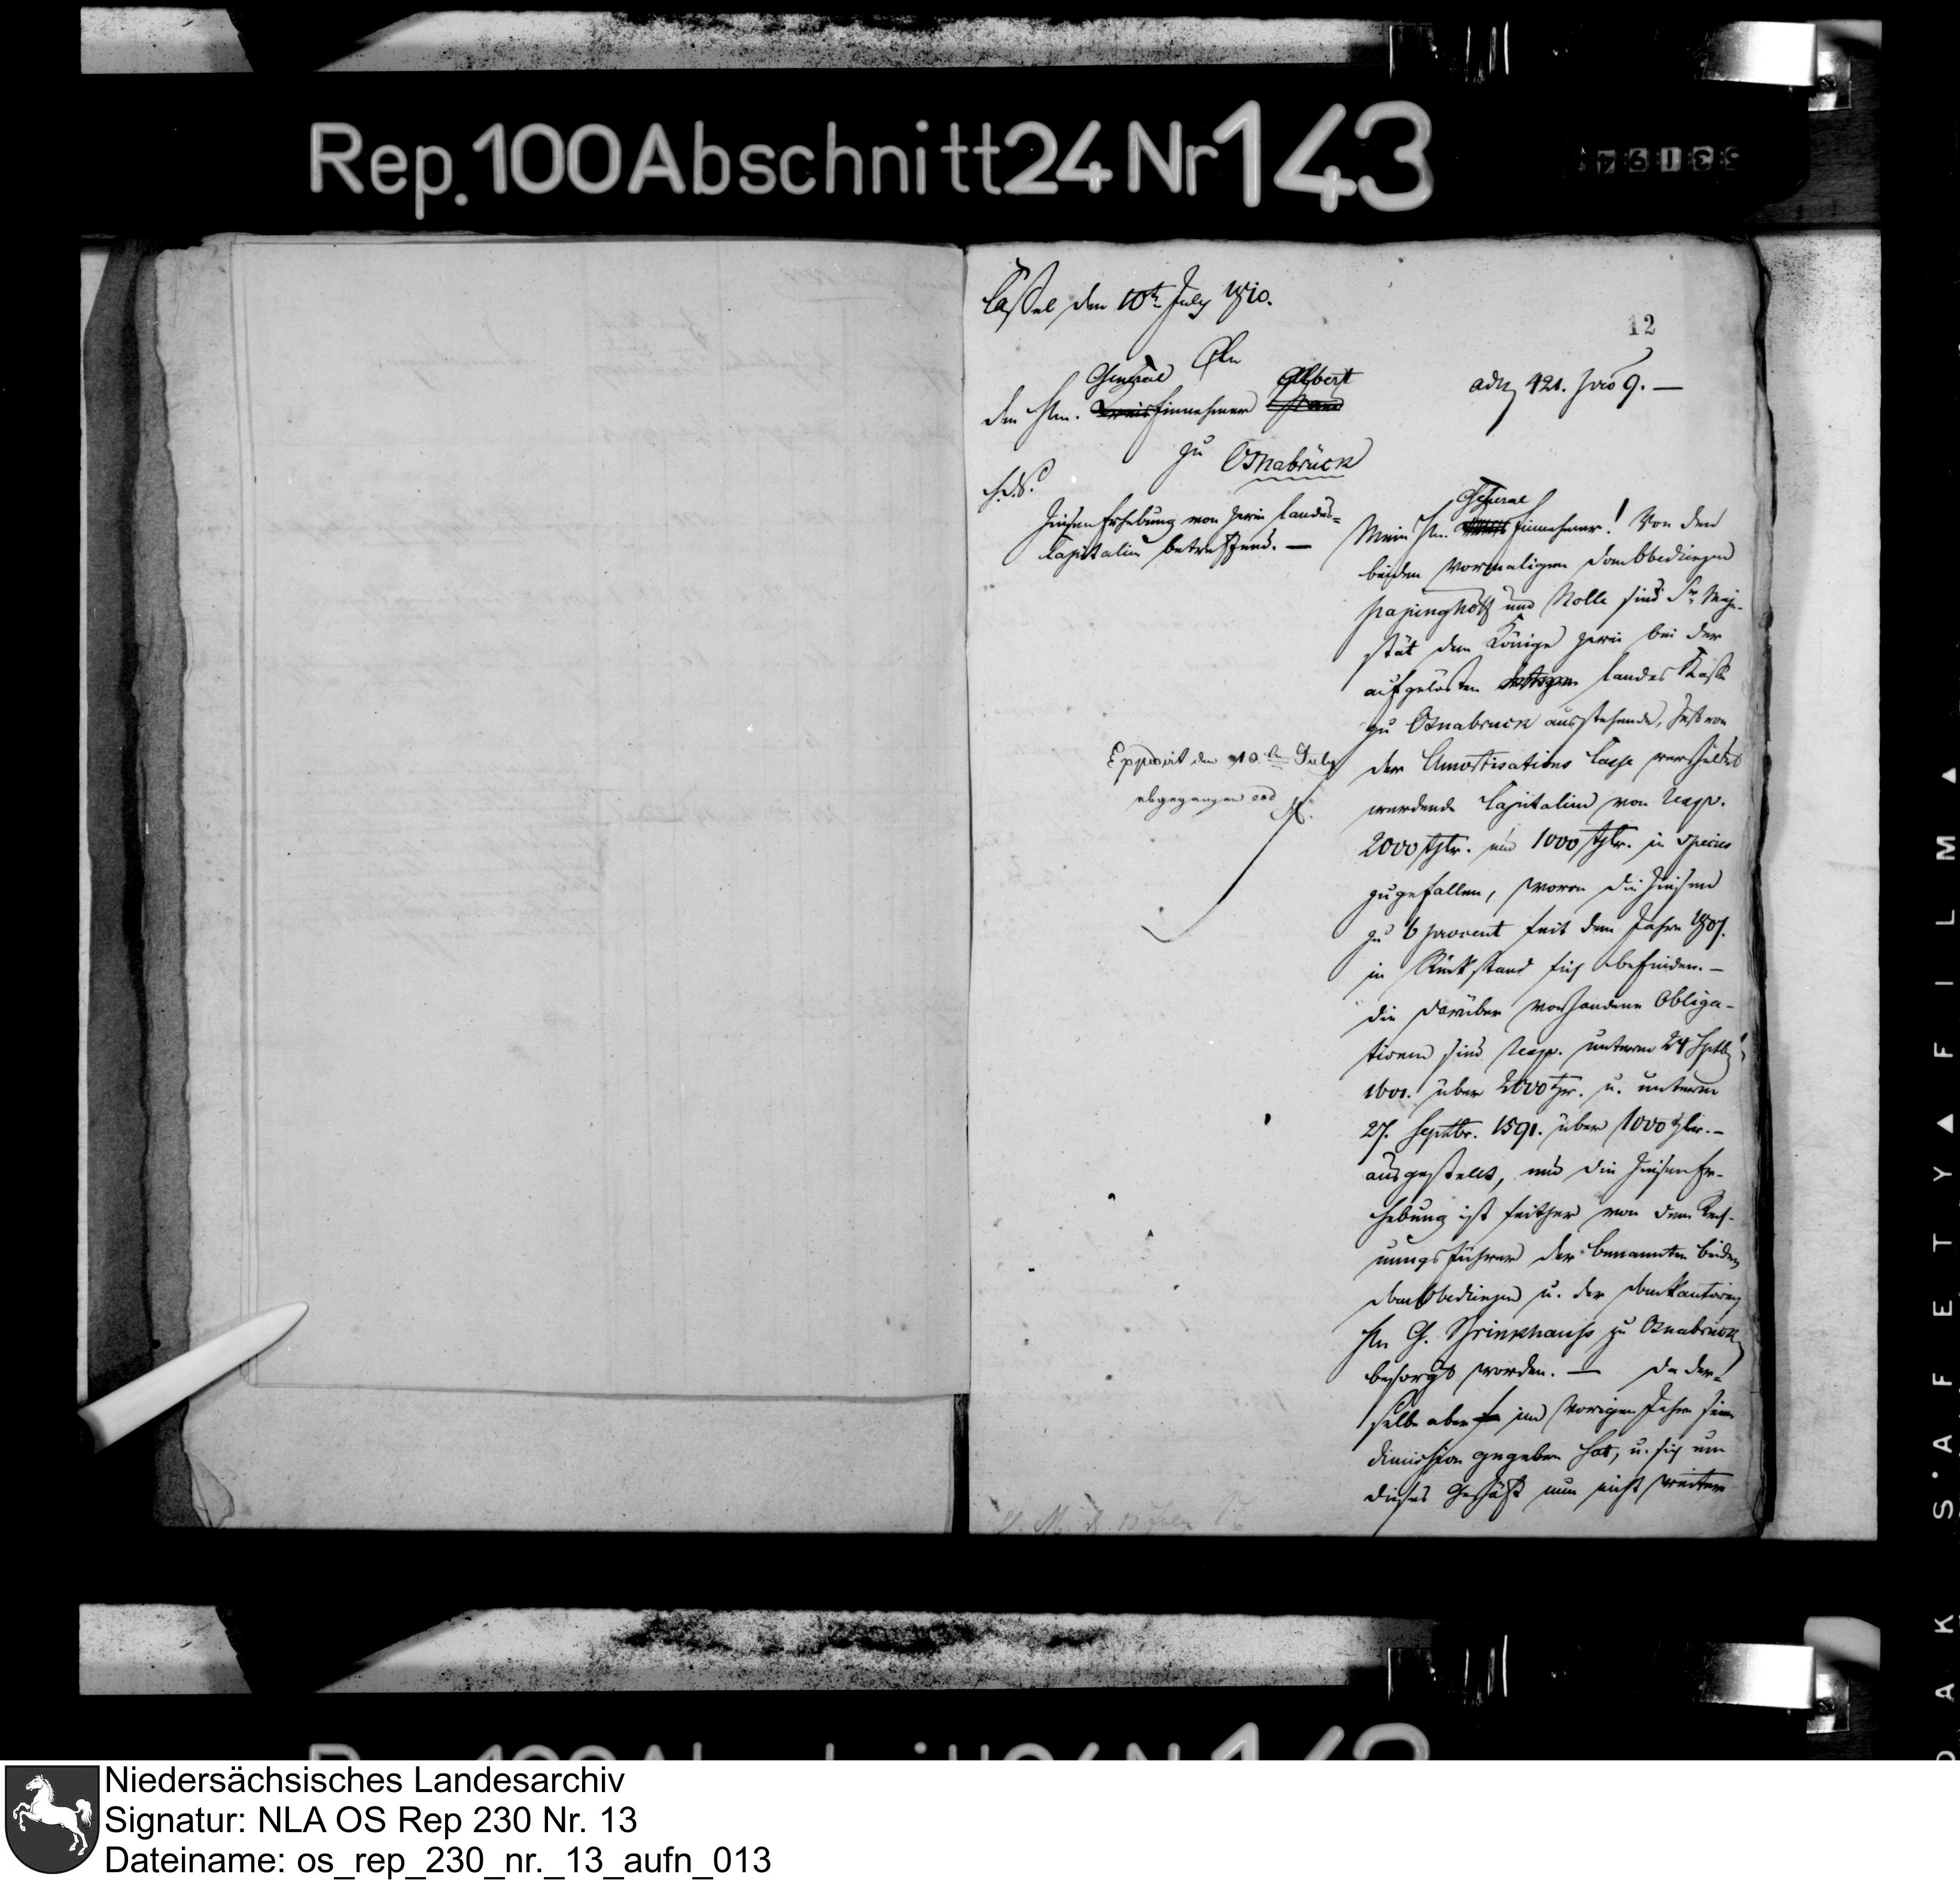 Rep. 100 Abschnitt 24 Nr 143
Cassel den 10t. July 1810.
12
An
General Gilbert
den Hrn. Einnehmer
zu Osnabrück
ad N 421. pro 9. —
Zinsen Erhebung von zwei Landes-
Capitalien betreffend. —
Expedirt den 10. July
abgegangen eod
General
Mein Hr. Einnehmer! Von den
beiden vormaligen Domobedienzen
und Nolle sind Sr. Maje-
stät dem Könige zwei bei der
aufgelösten Landes Kasse
zu Osnabruck ausstehende, jetzt von
der Amortisations Casse verschuldet
werdende Capitalien von resp.
2000 Thlr. und 1000 Thlr. in Species
zugefallen, wovon die Zinsen
zu 6 procent seit dem Jahre 1807.
in Rückstand sich befinden. —
die darüber vorhandene Obliga-
tionen sind resp. unterm 24 Septbr
1601. über 2000 Thr. u. unterm
27. Septbr. 1591. über 1000 Thlr. —
ausgestellt, und die Zinsen Er-
hebung ist seither von dem Rech-
nungsführer der benannten beiden
Domobedienzen u. der Domkantorey
Hn G. zu Osnabrück
besorgt worden. — Da der-
selbe aber im vorigen Jahre seine
Dimission gegeben hat, u. sich um
dieses Geschäft nun nicht weiter
SAFETY ▲ FILM ▲
Niedersächsisches Landesarchiv
Signatur: NLA OS Rep 230 Nr. 13
Dateiname: os_rep_230_nr._13_aufn_013